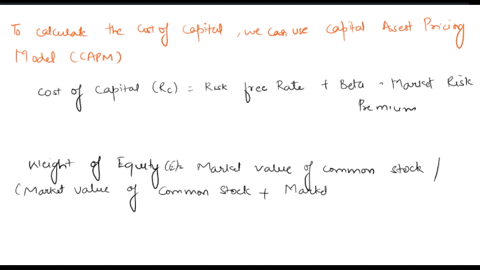 To calculate the cost of capital, we can use capital Assest Pricing
Model (CAPM)
cost of capital (Rc) = Risk free Rate + Beta * Market Risk
Premium
Weight of Equity (E): Market value of common stock /
(Market value of common stock + Market